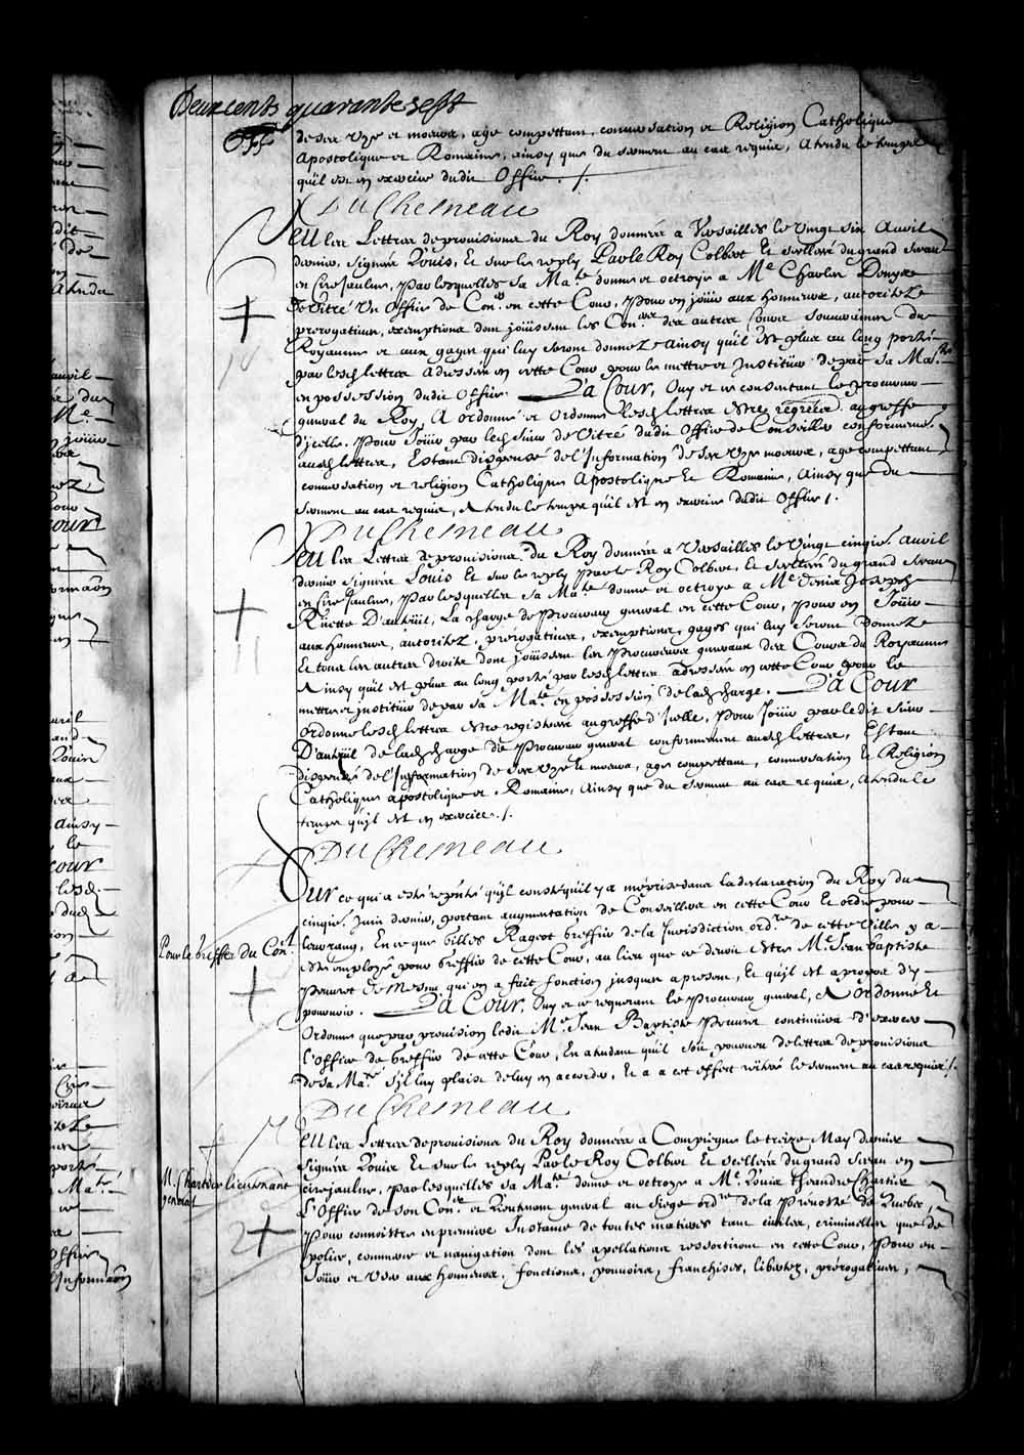 Deux cents quarante sept
de ses vye et moeurs, age compettant, conversation et Religion Catholique
Apostolique et Romaine, ainsy que du serment au cas requis, Attendu le temps
quil est en exercice dudit Office ./.
DuChesneau
Veu les Lettres de provisions du Roy données a Versailles le vingt six Avril
dernier, signées Louis, Et sur le reply Par le Roy Colbert Et scellées du grand sceau
en Cire jaulne, par lesquelles sa Ma.té donne et octroye a M.e Charles Denys
de Vitré Un Office de Con.er en cette Cour, pour en joüir aux honneurs, autoritez
prerogatives, exemptions dont joüissent les Con.ers des autres Cours souveraines du
Royaume et aux gages qui luy seront donnez ainsy quil est plus au long porté
par lesd. lettres adressées en cette Cour pour le mettre et Instituer de par sa Ma.té
en possession dudit Office. La Cour, Ouy et ce consentant le procureur
general du Roy, A ordonné et Ordonne lesd. lettres estre registrées au greffe
d'icelle, pour Joüir par led. sieur de Vitré dudit Office de Conseiller conformement
ausd. lettres, Estant dispensé de l'Information de ses vye moeurs, age compettant
conversation et religion Catholique Apostolique Et Romaine, Ainsy que du
serment au cas requis, Attendu le temps quil est en exercice dudit Office ./.
DuChesneau
Veu les Lettres de provisions du Roy données a Versailles le vingt cinqie. Avril
dernier signées Louis Et sur le reply par le Roy Colbert, Et scellées du grand sceau
en Cire jaulne, par lesquelles sa Ma.té donne et octroye a M.e Denis Joseph
Rüette D'auteüil, La charge de Procureur general en cette Cour, pour en Joüir
aux honneurs, autoritez, prerogatives, exemptions, gages qui luy seront donnez
Et tous les autres droits dont joüissent les Procureurs generaux des Cours du Royaume
Ainsy quil est plus au long porté par lesd. lettres adressées en cette Cour pour le
mettre et instituer de par sa Ma.té en possession de lad. charge. La Cour
Ordonne lesd. lettres estre registrées au greffe d'Icelle, pour Joüir par le dit sieur
D'auteüil de lad. charge de Procureur general conformement ausd. lettres, Estant
dispensé de l'Information de ses vye Et moeurs, age compettant, conversation Et Religion
Catholique apostolique et Romaine, Ainsy que du serment au cas requis, Attendu le
temps quil est en exercice ./.
DuChesneau
Sur ce qui a esté representé quil y a méprise dans la declaration du Roy du
cinqie. Juin dernier, portant augmentation de Conseillers en cette Cour Et ordre pour
leur rang, En ce que Gilles Rageot Greffier de la Jurisdiction ord.re de cette Ville y a
Pour le Greffier du Con.l
esté employé pour Greffier de cette Cour, au lieu que ce devoit estre M.e Jean baptiste
Peuvret de Mesnu qui en a fait fonction jusques a present, Et quil est a propos d'y
pourvoir. La Cour, Ouy et ce requerant le Procureur general, A ordonné Et
Ordonne que par provision ledit M.e Jean Baptiste Peuvret continüera d'exercer
l'Office de Greffier de cette Cour, En attendant quil soit pourveu de lettres de provisions
de sa Ma.té s'il luy plaist de luy en accorder, Et a cet effect réiteré le serment au cas requis ./.
DuChesneau
Veu les Lettres de provisions du Roy données a Compiegne le treize May dernier
signées Louis Et sur le reply Par le Roy Colbert Et scellées du grand sceau en
M. Chartier lieutenant
general
cire jaulne, par lesquelles sa Ma.té donne et octroye a M.e Louis theandre Chartier
L'Office de son Con.er et Lieutenant general au siege ord.re de la Prevosté de Quebec,
pour connoistre en premiere Instance de toutes matieres tant civiles, criminelles que de
police, commerce et navigation dont les apellations ressortiront en cette Cour, Pour en
Joüir et User aux honneurs, fonctions, pouvoirs, franchises, libertez, prerogatives,